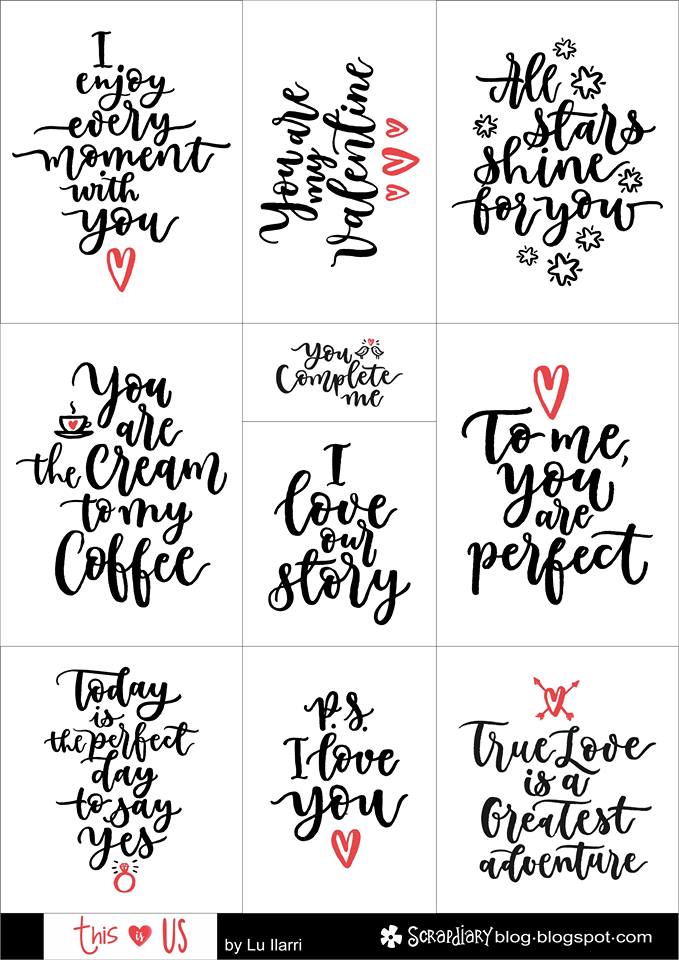 I
enjoy
every
moment
with
you
You are
my
Valentine
All
stars
shine
for you
You
are
the Cream
to my
Coffee
You
Complete
me
I
love
our
story
To me,
you
are
perfect
Today
is
the perfect
day
to say
yes
P.S.
I love
you
True Love
is a
Greatest
adventure
this is US
by Lu Ilarri
Scrapdiary blog.blogspot.com